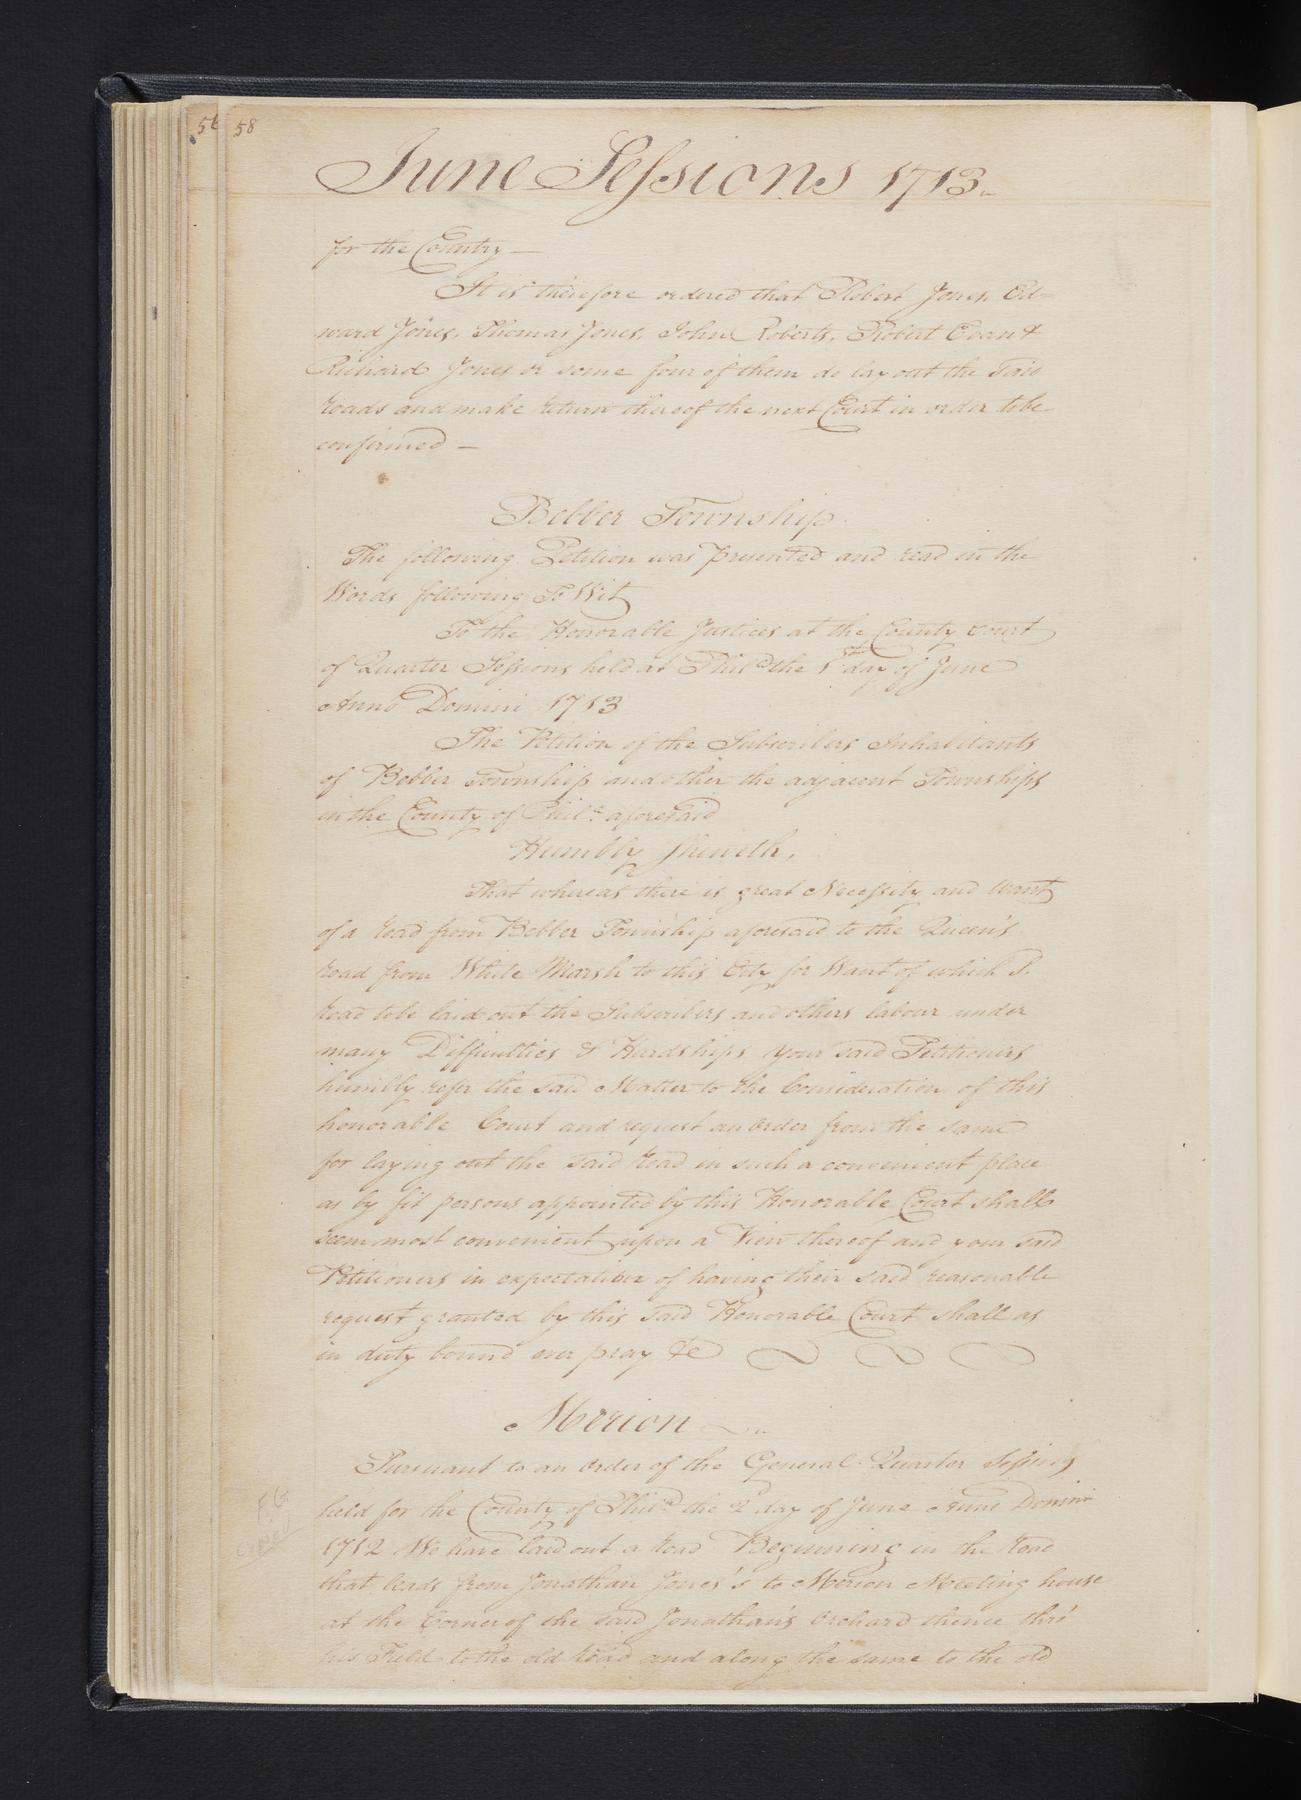 56 58
June Sessions 1713.
for the Country —
It is therefore ordered that Robert Jones, Ed=
ward Jones, Thomas Jones, John Roberts, Robert Evan &
Richard Jones or some four of them do lay out the said
roads and make return thereof the next Court in order to be
confirmed —
Bebber Township.
The following Petition was presented and read in the
Words following To Wit
To the Honorable Justices at the County Court
of Quarter Sessions held at Philᵃ the 1st day of June
Anno Domini 1713
The Petition of the Subscribers Inhabitants
of Bebber Township and other the adjacent Townships
in the County of Philᵃ aforesaid
Humbly Sheweth,
That whereas there is great Necessity and want
of a road from Bebber Township aforesaid to the Queen's
road from White Marsh to this City for Want of which S.
road to be laid out the Subscribers and others labour under
many Difficulties & Hardships your said Petitioners
humbly refer the said Matter to the Consideration of this
honorable Court and request an order from the same
for laying out the said road in such a convenient place
as by fit persons appointed by this Honorable Court shall
seem most convenient upon a View thereof and your said
Petitioners in expectation of having their said reasonable
request granted by this said Honorable Court shall as
in duty bound ever pray &c
Merion
Pursuant to an order of the General Quarter Sessions
held for the County of Philᵃ the 2d day of June Anno Domini
1712 We have laid out a road Beginning in the road
that leads from Jonathan Jones's to Merion Meeting house
at the Corner of the said Jonathan's Orchard thence thro'
his Field to the old road and along the same to the old